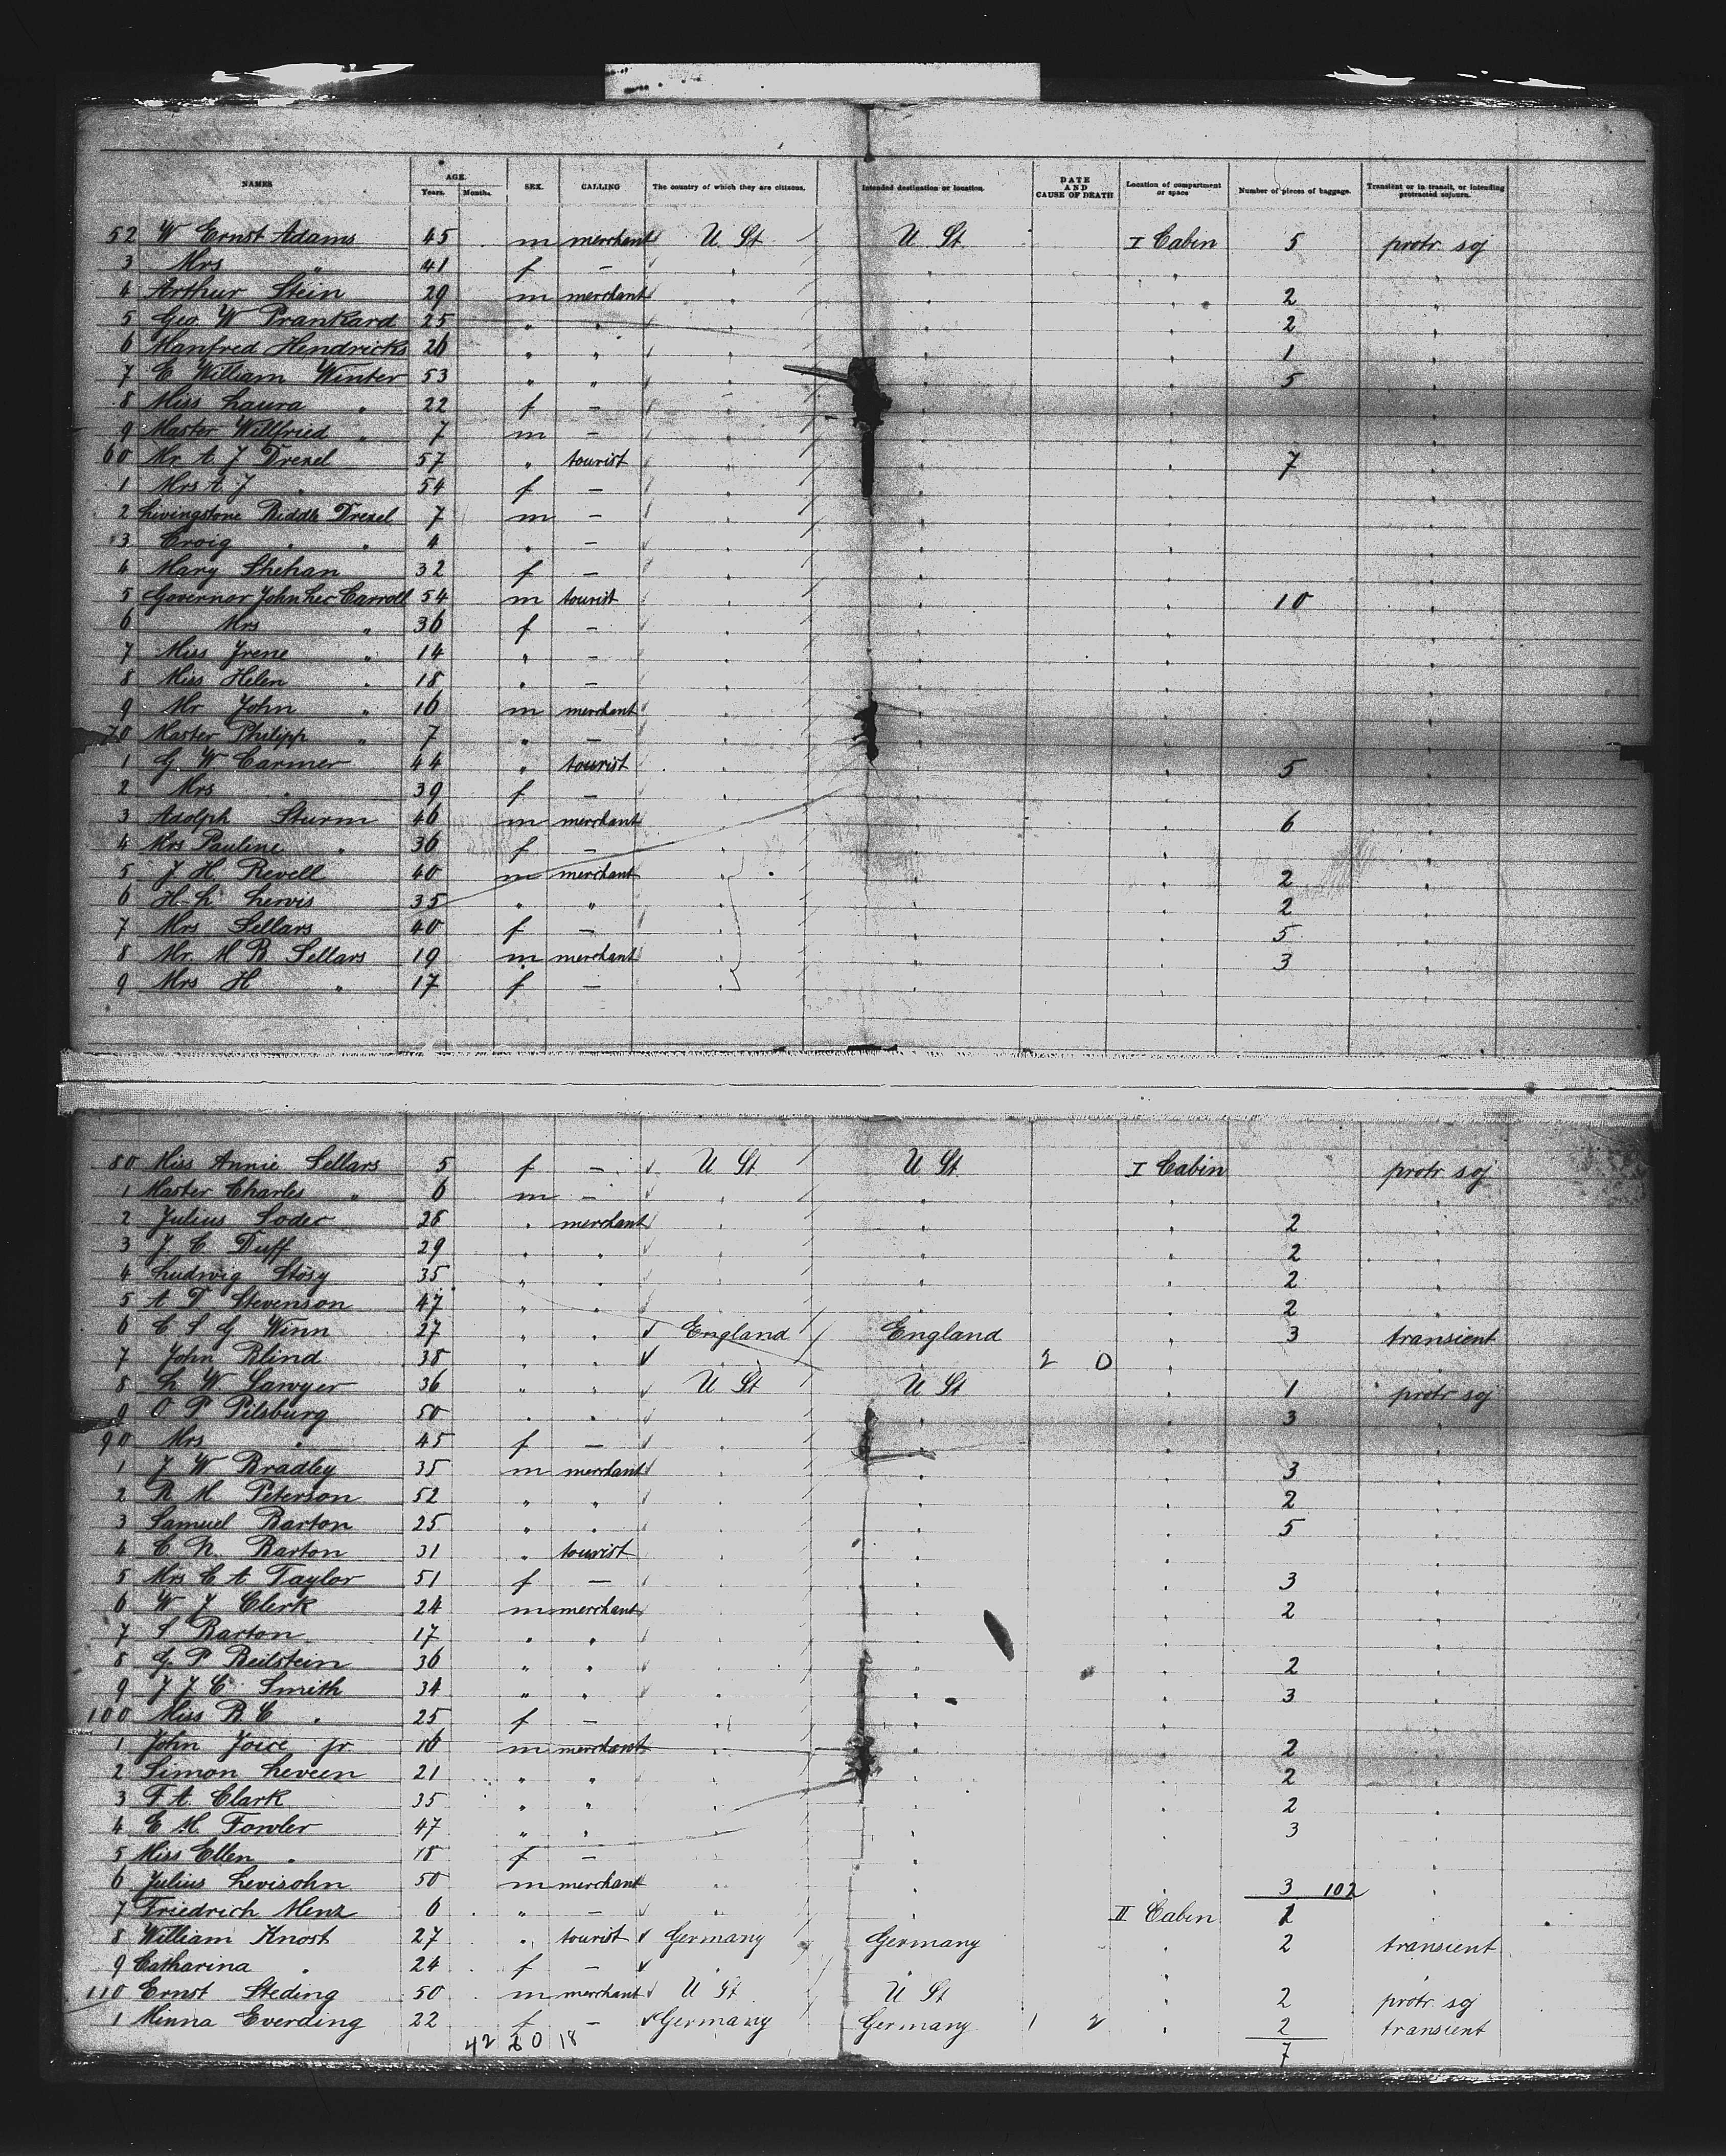 NAMES AGE. Years. Months. SEX. CALLING The country of which they are citizens. Intended destination or location. DATE AND CAUSE OF DEATH Location of compartment or space Number of pieces of baggage. Transient or in transit, or intending protracted sojourn.
52 W Ernst Adams 45 m merchant U. St U St. I Cabin 5 protr. soj
3 Mrs " 41 f –
4 Arthur Stein 29 m merchant 2
5 Geo. W Prankard 25 " " 2
6 Manfred Hendricks 26 " " 1
7 E William Winter 53 " " 5
8 Miss Laura " 22 f –
9 Master Willfried " 7 m –
60 Mr. A J Drexel 57 " tourist 7
1 Mrs A J " 54 f –
2 Livingstone Biddle Drexel 7 m –
3 Croig " " 4 " –
4 Mary Shehan 32 f –
5 Governor John Lee Carroll 54 m tourist 10
6 Mrs " 36 f –
7 Miss Irene " 14 " –
8 Miss Helen " 18 " –
9 Mr John " 16 m merchant
70 Master Philipp " 7 " –
1 G. W Carmer 44 " tourist 5
2 Mrs " 39 f –
3 Adolph Sturm 46 m merchant 6
4 Mrs Pauline " 36 f –
5 J H. Revell 40 m merchant 2
6 H. L. 35 " " 2
7 Mrs Sellars 40 f – 5
8 Mr. M B Sellars 19 m merchant 3
9 Mrs H " 17 f –
80 Miss Annie Sellars 5 f – U St U St. I Cabin protr soj
1 Master Charles " 6 m –
2 Julius 26 " merchant 2
3 J C Duff 29 " " 2
4 Ludwig 35 " " 2
5 A T Stevenson 47 " " 2
6 C S G Winn 27 " " England England 3 transient
7 John Blind 38 " " 2 0
8 L. W. Sawyer 36 " " U St U St 1 protr soj
9 O P Pilsburg 50 " " 3
90 Mrs " 45 f –
1 J W Bradley 35 m merchant 3
2 R M Peterson 52 " " 2
3 Samuel Barton 25 " " 5
4 C N. Barton 31 " tourist
5 Mrs C A Taylor 51 f – 3
6 W J Clerk 24 m merchant 2
7 S Barton 17 " "
8 G. P Beilstein 36 " " 2
9 J J C Smith 34 " " 3
100 Miss B. C " 25 f –
1 John Joice jr 16 m merchant 2
2 Simon Leveen 21 " " 2
3 F. A. Clark 35 " " 2
4 E M. Fowler 47 " " 3
5 Miss Ellen " 18 f –
6 Julius Levisohn 50 m merchant 3 102
7 Friedrich Menz 6 " – II Cabin 1
8 William Knost 27 " tourist Germany Germany 2 transient
9 Catharina " 24 f –
110 Ernst Steding 50 m merchant U St U St 2 protr. soj
1 Minna Everding 22 f – Germany Germany 1 2 2 transient
42 60 18 7